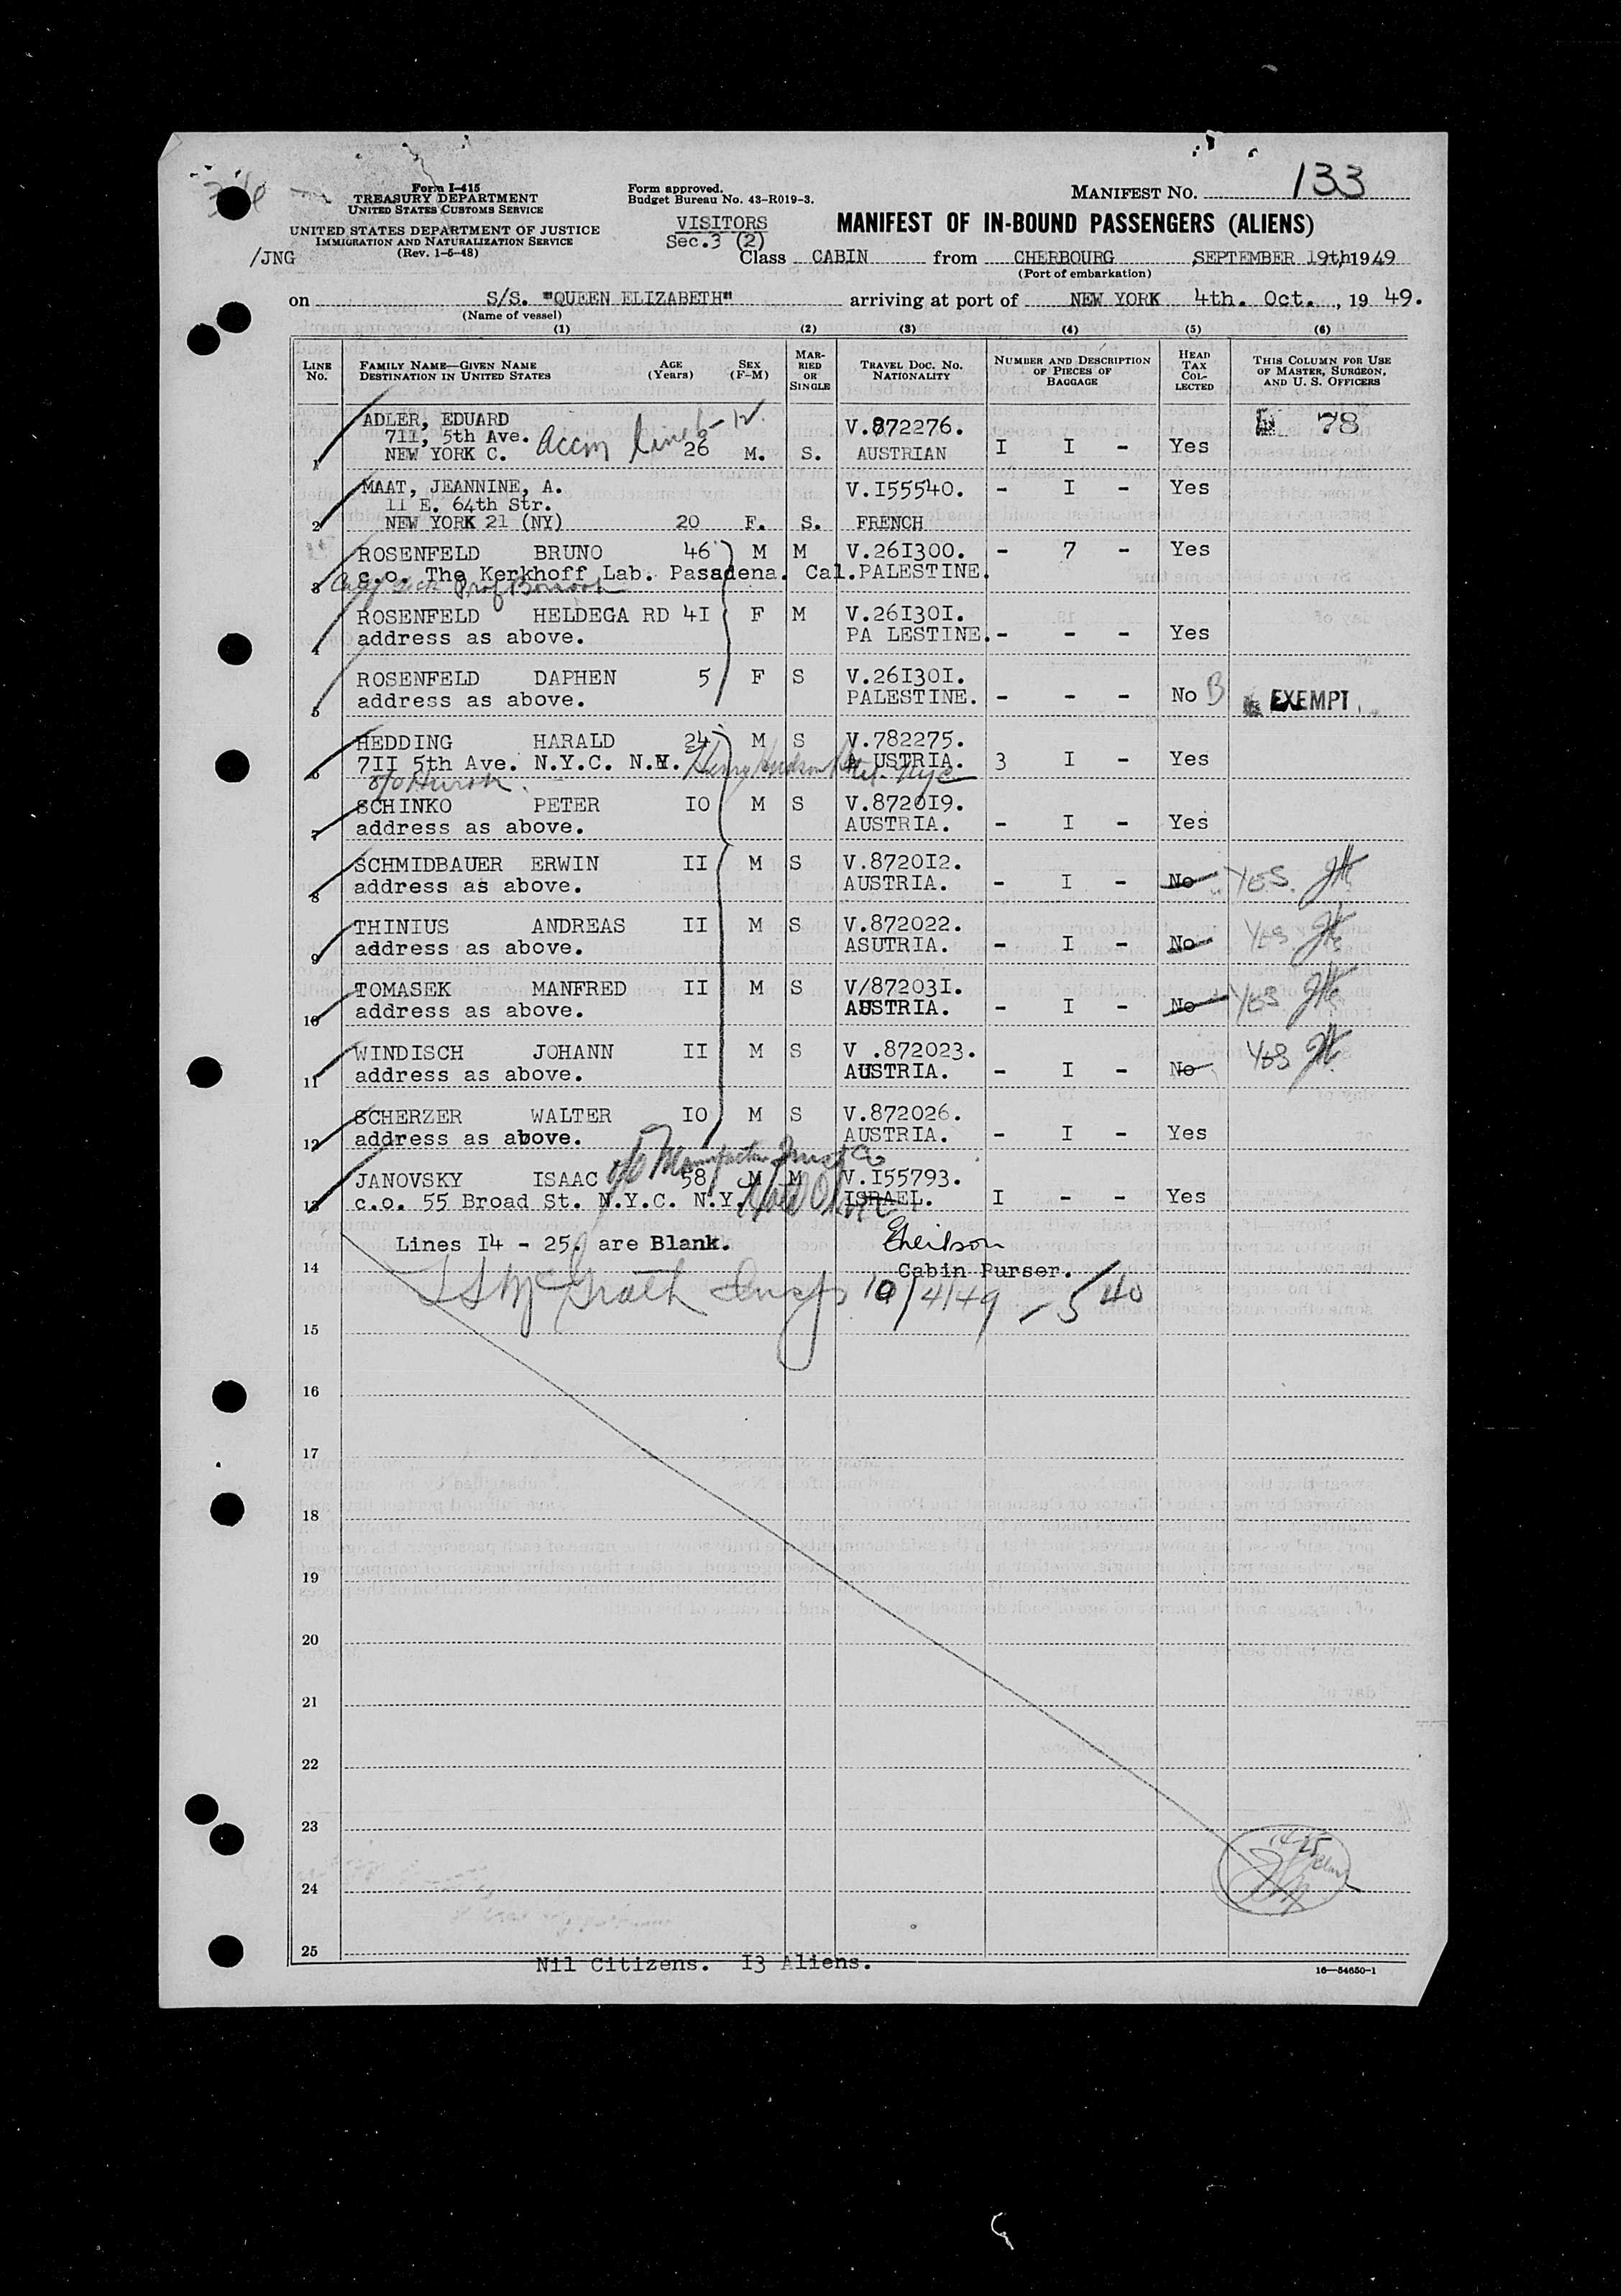 Form I-415
TREASURY DEPARTMENT
UNITED STATES CUSTOMS SERVICE
UNITED STATES DEPARTMENT OF JUSTICE
IMMIGRATION AND NATURALIZATION SERVICE
(Rev. 1-5-48)
/JNG
Form approved.
Budget Bureau No. 43-R019-3.
VISITORS
Sec.3 (2)
MANIFEST NO. 133
MANIFEST OF IN-BOUND PASSENGERS (ALIENS)
Class CABIN from CHERBOURG SEPTEMBER 19th 1949
(Port of embarkation)
on S/S. "QUEEN ELIZABETH" arriving at port of NEW YORK 4th. Oct. , 19 49.
(Name of vessel)
(1) (2) (3) (4) (5) (6)
LINE No. FAMILY NAME—GIVEN NAME DESTINATION IN UNITED STATES AGE (Years) SEX (F-M) MARRIED OR SINGLE TRAVEL DOC. NO. NATIONALITY NUMBER AND DESCRIPTION OF PIECES OF BAGGAGE HEAD TAX COLLECTED THIS COLUMN FOR USE OF MASTER, SURGEON, AND U. S. OFFICERS
ADLER, EDUARD V.872276. 78
711, 5th Ave. accm line 6-12
1 NEW YORK C. 26 M. S. AUSTRIAN I I - Yes
MAAT, JEANNINE, A. V.I55540. - I - Yes
11 E. 64th Str.
2 NEW YORK 21 (NY) 20 F. S. FRENCH
ROSENFELD BRUNO 46 M M V.26I300. - 7 - Yes
3 c.o. The Kerkhoff Lab. Pasadena. Cal. PALESTINE.
Prof
ROSENFELD HELDEGA RD 4I F M V.26I30I.
4 address as above. PA LESTINE. - - - Yes
ROSENFELD DAPHEN 5 F S V.26I30I.
5 address as above. PALESTINE. - - - No B EXEMPT
HEDDING HARALD 24 M S V.782275.
6 7II 5th Ave. N.Y.C. N.Y. Henry Hudson Htl. NYC A USTRIA. 3 I - Yes
SCHINKO PETER IO M S V.8720I9.
7 address as above. AUSTRIA. - I - Yes
SCHMIDBAUER ERWIN II M S V.8720I2.
8 address as above. AUSTRIA. - I - No Yes.
THINIUS ANDREAS II M S V.872022.
9 address as above. ASUTRIA. - I - No Yes
TOMASEK MANFRED II M S V/87203I.
10 address as above. AUSTRIA. - I - No Yes
WINDISCH JOHANN II M S V .872023. Yes
11 address as above. AUSTRIA. - I - No
SCHERZER WALTER IO M S V.872026.
12 address as above. AUSTRIA. - I - Yes
c/o Manufacturers Trust Co
JANOVSKY ISAAC 58 M M V.I55793.
13 c.o. 55 Broad St. N.Y.C. N.Y. ISRAEL. I - - Yes
Lines I4 - 25. are Blank.
14 Cabin Purser.
McGrath Insp 10/4/49 - 540
15
16
17
18
19
20
21
22
23
24
25
Nil Citizens. I3 Aliens.
16—54650-1